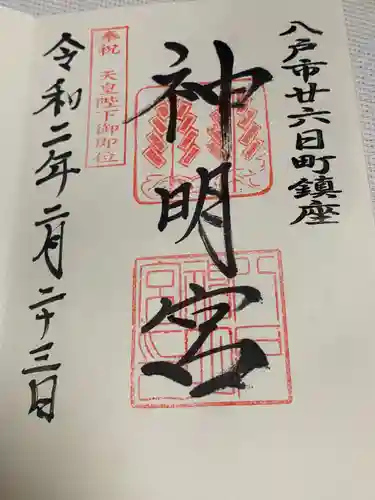 八戸市廿六日町鎮座
神明宮
奉祝 天皇陛下御即位
令和二年二月二十三日